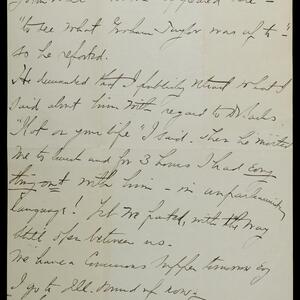 "to see what Graham Taylor was up to"
so he reported.
He demanded that I publicly retract what I
said about him with regard to
"Not on your life" I said. Then he invited
me to lunch and for 3 hours I had every
thing out with him - in unparliamentary
language! Yet we parted, with the way
still open between us.
We have a Commons supper tomorrow eve
I go to Ill.